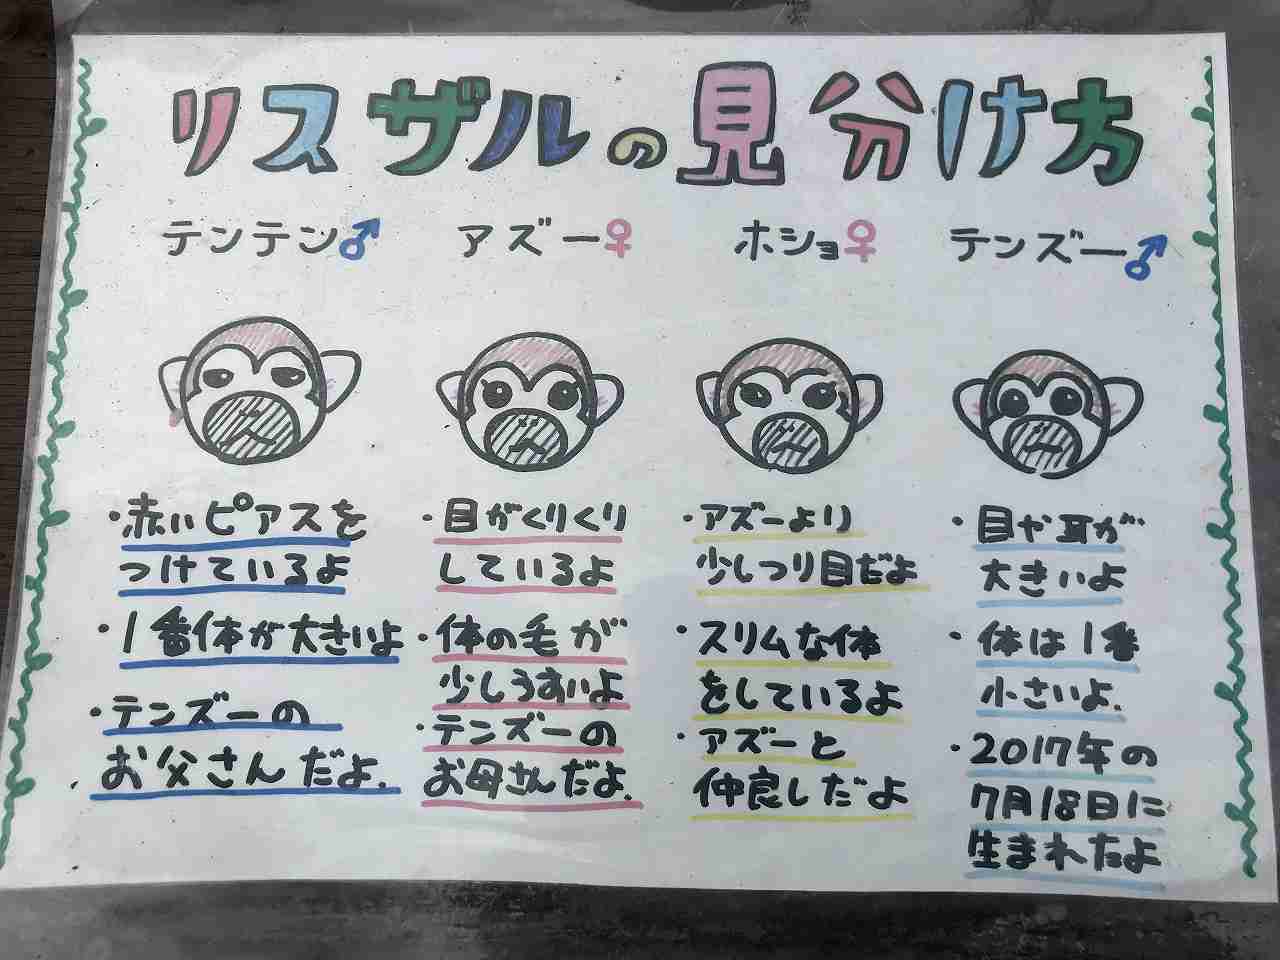 リスザルの見分け方
テンテン♂
・赤いピアスを
つけているよ
・1番体が大きいよ
・テンズーの
お父さんだよ.
アズー♀
・目がくりくり
しているよ
・体の毛が
少しうすいよ
・テンズーの
お母さんだよ.
ホショ♀
・アズーより
少しつり目だよ
・スリムな体
をしているよ
・アズーと
仲良しだよ
テンズー♂
・目や耳が
大きいよ
・体は1番
小さいよ.
・2017年の
7月18日に
生まれたよ